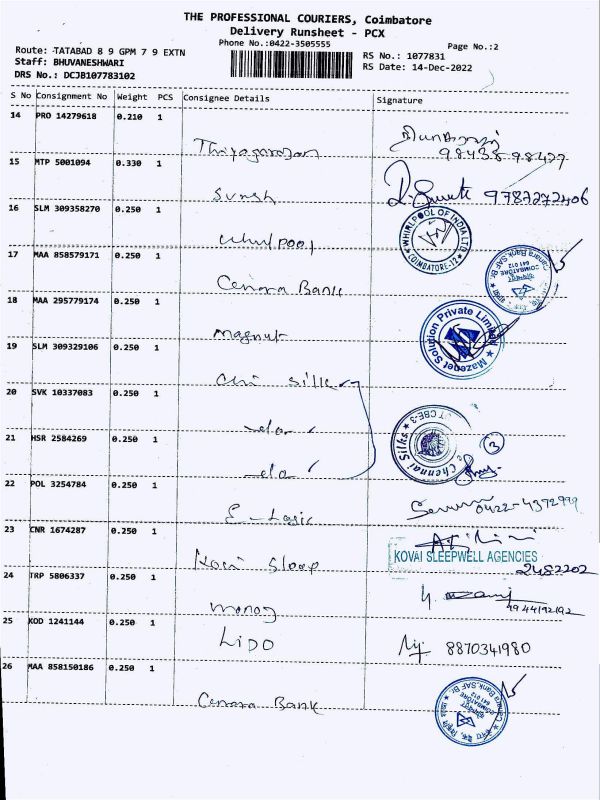 THE PROFESSIONAL COURIERS, Coimbatore
Delivery Runsheet - PCX
Phone No.:0422-3505555
Page No.:2
Route: TATABAD 8 9 GPM 7 9 EXTN
RS No.: 1077831
Staff: BHUVANESHWARI
RS Date: 14-Dec-2022
DRS No.: DCJB107783102
S No Consignment No Weight PCS Consignee Details Signature
14 PRO 14279618 0.210 1
Thiyagarajan
98438 98427
15 MTP 5001094 0.330 1
Suresh
9787272406
16 SLM 309358270 0.250 1
Whirlpool
WHIRLPOOL OF INDIA LTD
COIMBATORE-12
17 MAA 858579171 0.250 1
Canara Bank
Canara Bank, SAF Br.
COIMBATORE
641 012
18 MAA 295779174 0.250 1
Mazenet Solution Private Limited
19 SLM 309329106 0.250 1
Chi Silks
20 SVK 10337083 0.250 1
-do-
Chennai Silks
CBE-3
3
21 HSR 2584269 0.250 1
-do-
22 POL 3254784 0.250 1
E-Logic
0422-4392999
23 CNR 1674287 0.250 1
Kovai Sleep
KOVAI SLEEPWELL AGENCIES
2482202
24 TRP 5806337 0.250 1
Manoj
9944192192
25 KOD 1241144 0.250 1
LIDO
8870341980
26 MAA 858150186 0.250 1
Canara Bank
Canara Bank, SAF Br.
COIMBATORE
641 012